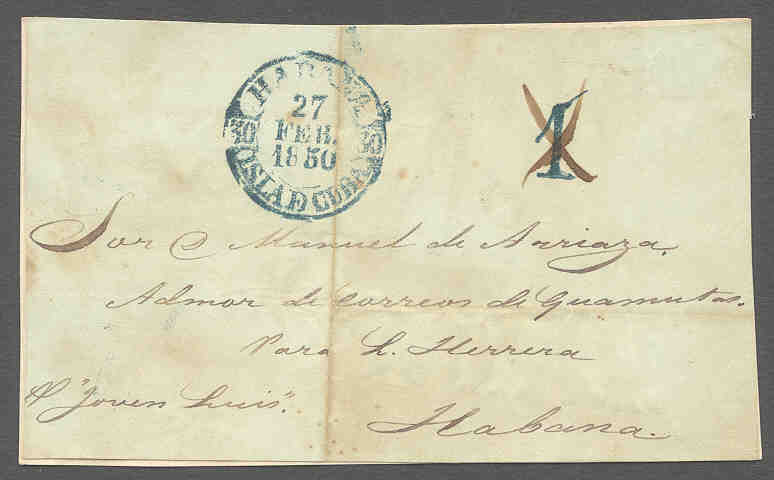 HABANA
27
FEB.
1850
ISLA DE CUBA
1
Sor Dn Manuel de Arriaza.
Admor de Correos de Guamutas.
Para L. Herrera
Pr "Joven Luis".
Habana.